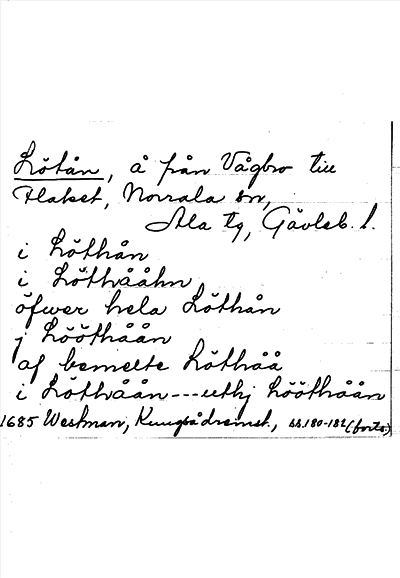 Lötån, å från Vågbro till
Flaket, Norrala sn,
Ala tg, Gävleb. l.
i Löthån
i Löthååhn
öfwer hela Löthån
j Lööthåån
af bemelte Löthåå
i Löthåån---uthj Lööthåån
1685 Westman, Kungsådreinst., ss. 180-182 (forts.)